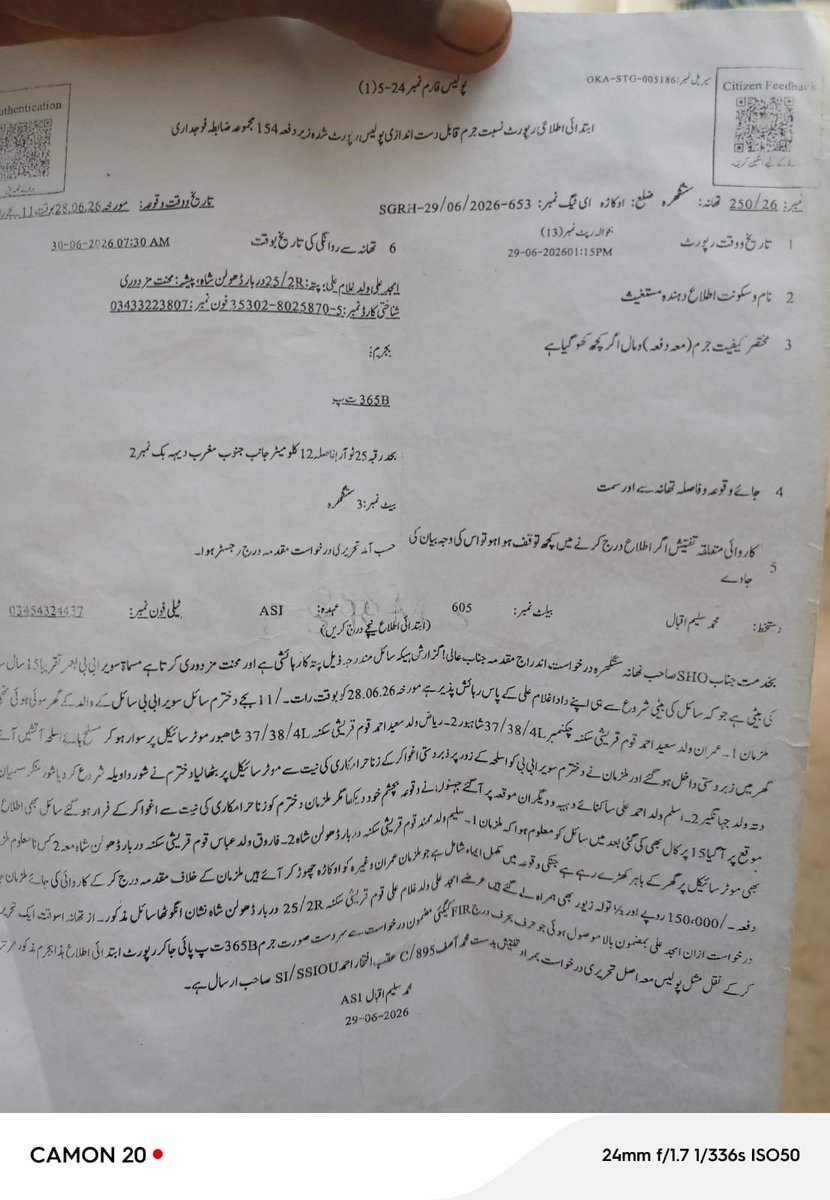 پولیس فارم نمبر 24-5(1)
سیریل نمبر: OKA-STG-005186
Citizen Feedback
uthentication
ابتدائی اطلاعی رپورٹ نسبت جرم قابل دست اندازی پولیس رپورٹ شدہ زیر دفعہ 154 مجموعہ ضابطہ فوجداری
نمبر: 250/26 تھانہ: ستگھرہ ضلع: اوکاڑہ ای ٹیگ نمبر: SGRH-29/06/2026-653 تاریخ و وقت وقوعہ: مورخہ 28.06.26 بوقت 11 بجے
1 تاریخ و وقت رپورٹ بحوالہ رپٹ نمبر (13) 29-06-2026 01:15PM
6 تھانہ سے روانگی کی تاریخ بوقت 30-06-2026 07:30 AM
2 نام و سکونت اطلاع دہندہ مستغیث امجد علی ولد غلام علی؛ پتہ: 25/2R دربار ڈھولن شاہ؛ پیشہ: محنت مزدوری
شناختی کارڈ نمبر: 35302-8025870-5 فون نمبر: 03433223807
3 مختصر کیفیت جرم (معہ دفعہ) و مال اگر کچھ کھو گیا ہے بجرم:
365B ت پ
4 جائے وقوعہ و فاصلہ تھانہ سے اور سمت بحد رقبہ 25 ٹو آر بفاصلہ 12 کلومیٹر جانب جنوب مغرب دیہہ بک نمبر 2
بیٹ نمبر: 3 ستگھرہ
5 کاروائی متعلقہ تفتیش اگر اطلاع درج کرنے میں کچھ توقف ہوا ہو تو اس کی وجہ بیان کی جاوے حسب آمد تحریری درخواست مقدمہ درج رجسٹر ہوا۔
دستخط: محمد سلیم اقبال بیلٹ نمبر: 605 عہدہ: ASI ٹیلی فون نمبر: 03454324437
(ابتدائی اطلاع نیچے درج کریں)
بخدمت جناب SHO صاحب تھانہ ستگھرہ درخواست اندراج مقدمہ جناب عالی! گزارش ہیکہ سائل مندرجہ ذیل پتہ کا رہائشی ہے اور محنت مزدوری کرتا ہے مسماۃ سویرا بی بی بعمر تقریبا 15 سال سائل
کی بیٹی ہے جو کہ سائل کی بیٹی شروع سے ہی اپنے دادا غلام علی کے پاس رہائش پذیر ہے مورخہ 28.06.26 کو بوقت رات۔/11 بجے دخترم سائل سویرا بی بی سائل کے والد کے گھر سوئی ہوئی تھی
ملزمان 1۔ عمران ولد سعید احمد قوم قریشی سکنہ چکنمبر 37/38/4L شاہپور 2۔ ریاض ولد سعید احمد قوم قریشی سکنہ 37/38/4L شاھپور موٹر سائیکل پر سوار ہو کر مسلح ہائے اسلحہ آتشیں آئے
گھر میں زبردستی داخل ہو گئے اور ملزمان نے دخترم سویرا بی بی کو اسلحہ کے زور پر زبردستی اغوا کر کے زنا حرامکاری کی نیت سے موٹر سائیکل پر بٹھا لیا دخترم نے شور واویلہ شروع کر دیا شور سنکر مسمیان
دتہ ولد جہانگیر 2۔ اسلم ولد احمد علی ساکنائے دیہہ و دیگران موقعہ پر آ گئے جنہوں نے وقوعہ بچشم خود دیکھا مگر ملزمان دخترم کو زنا حرامکاری کی نیت سے اغوا کر کے فرار ہو گئے سائل بھی اطلاع
موقع پر آ گیا 15 پر کال بھی کی گئی بعد میں سائل کو معلوم ہوا کہ ملزمان 1۔ سلیم ولد محمد قوم قریشی سکنہ دربار ڈھولن شاہ 2۔ فاروق ولد عباس قوم قریشی سکنہ دربار ڈھولن شاہ معہ 2 کس نامعلوم
بھی موٹر سائیکل پر گھر کے باہر کھڑے رہے ہے جنکی وقوعہ میں مکمل ایماء شامل ہے جو ملزمان عمران وغیرہ کو اوکاڑہ چھوڑ کر آئے ہیں ملزمان کے خلاف مقدمہ درج کر کے کاروائی کی جائے ملزمان
دفعہ۔/150,000 روپے اور ½ تولہ زیور بھی ہمراہ لے گئے ہیں عرضے امجد علی ولد غلام علی قوم قریشی سکنہ 25/2R دربار ڈھولن شاہ نشان انگوٹھا سائل مذکور۔ از تھانہ اسوقت ایک تحریری
درخواست ازان امجد علی بمضمون بالا موصول ہوئی جو حرف بحرف درج FIR کیگئی مضمون درخواست سے سر دست صورت جرم 365B ت پ پائی جا کر رپورٹ ابتدائی اطلاع ہذا بجرم مذکور مرتب
کر کے نقل مثل پولیس معہ اصل تحریری درخواست بمراد تفتیش بدست محمد آصف 895/C عقب افتخار احمد SI/SSIOU صاحب ارسال ہے۔
محمد سلیم اقبال ASI
29-06-2026
CAMON 20
24mm f/1.7 1/336s ISO50